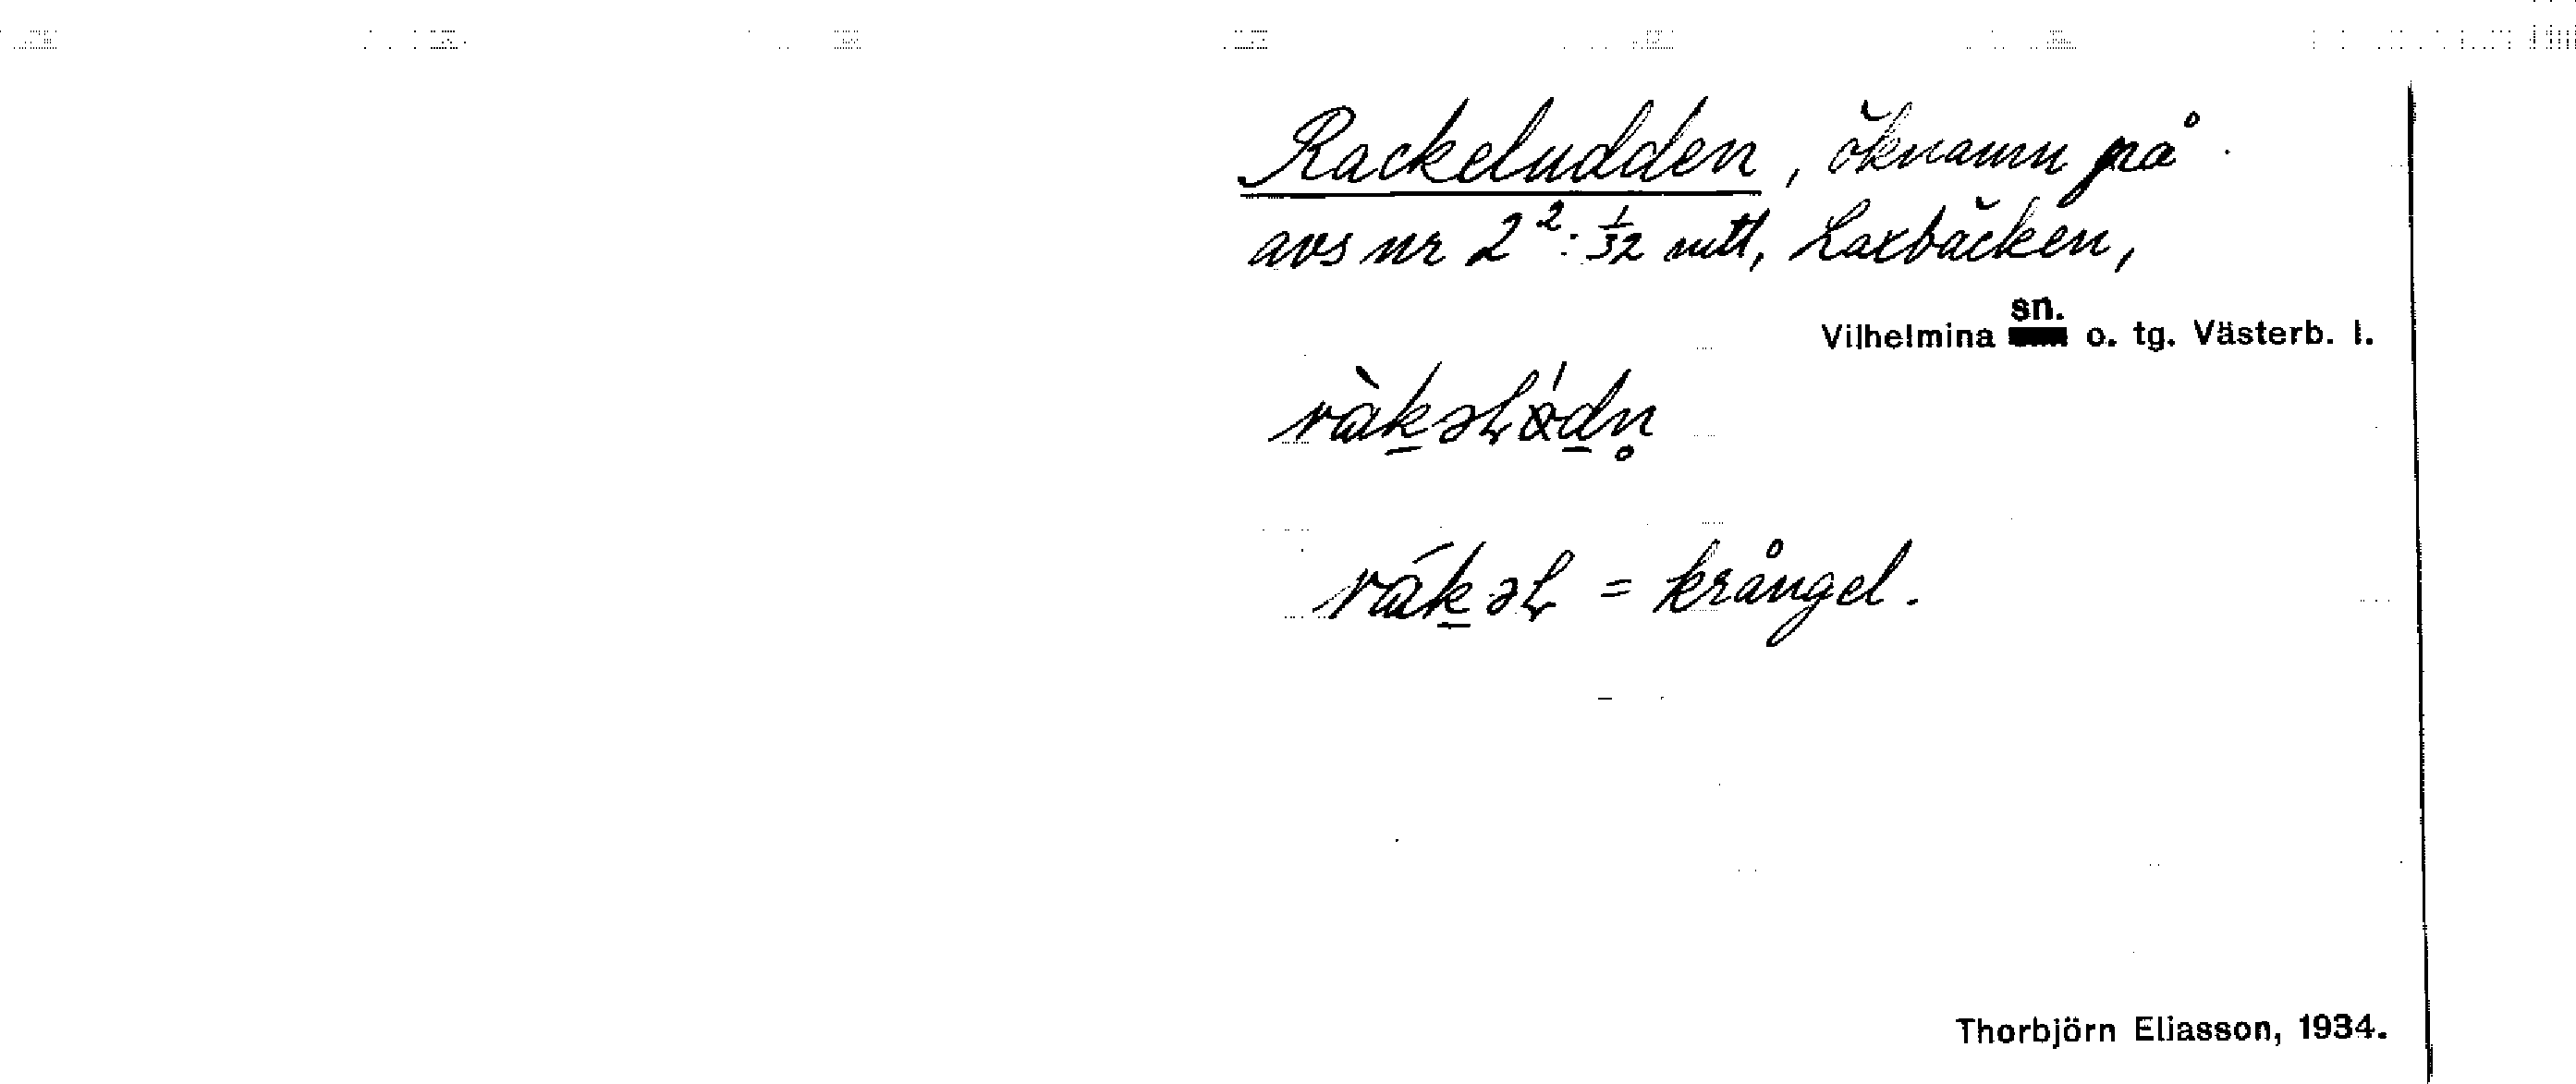 Rackeludden, öknamn på
avs nr 2²: 1/32 mtl, Laxbäcken,
sn.
Vilhelmina o. tg. Västerb. l.
ràkəɫɷ́dn̥
rákəɫ = krångel.
Thorbjörn Eliasson, 1934.